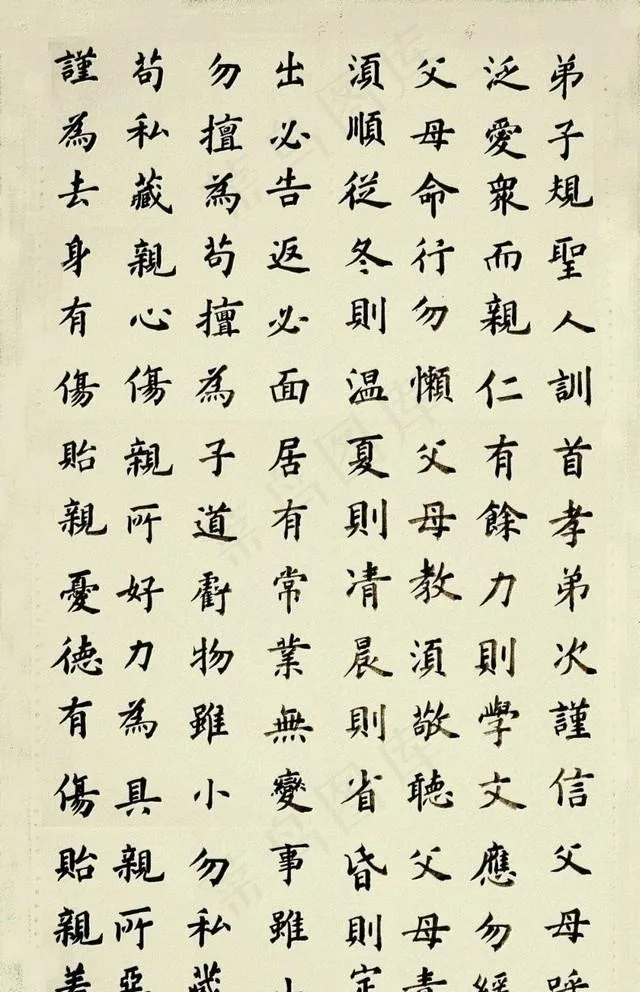 弟子規聖人訓首孝弟次謹信父母呼
泛愛衆而親仁有餘力則學文應勿緩
父母命行勿懶父母教須敬聽父母責
須順從冬則温夏則凊晨則省昏則定
出必告返必面居有常業無變事雖小
勿擅為苟擅為子道虧物雖小勿私藏
苟私藏親心傷親所好力為具親所惡
謹為去身有傷貽親憂德有傷貽親羞
菜鸟图库
菜鸟图库
菜鸟图库